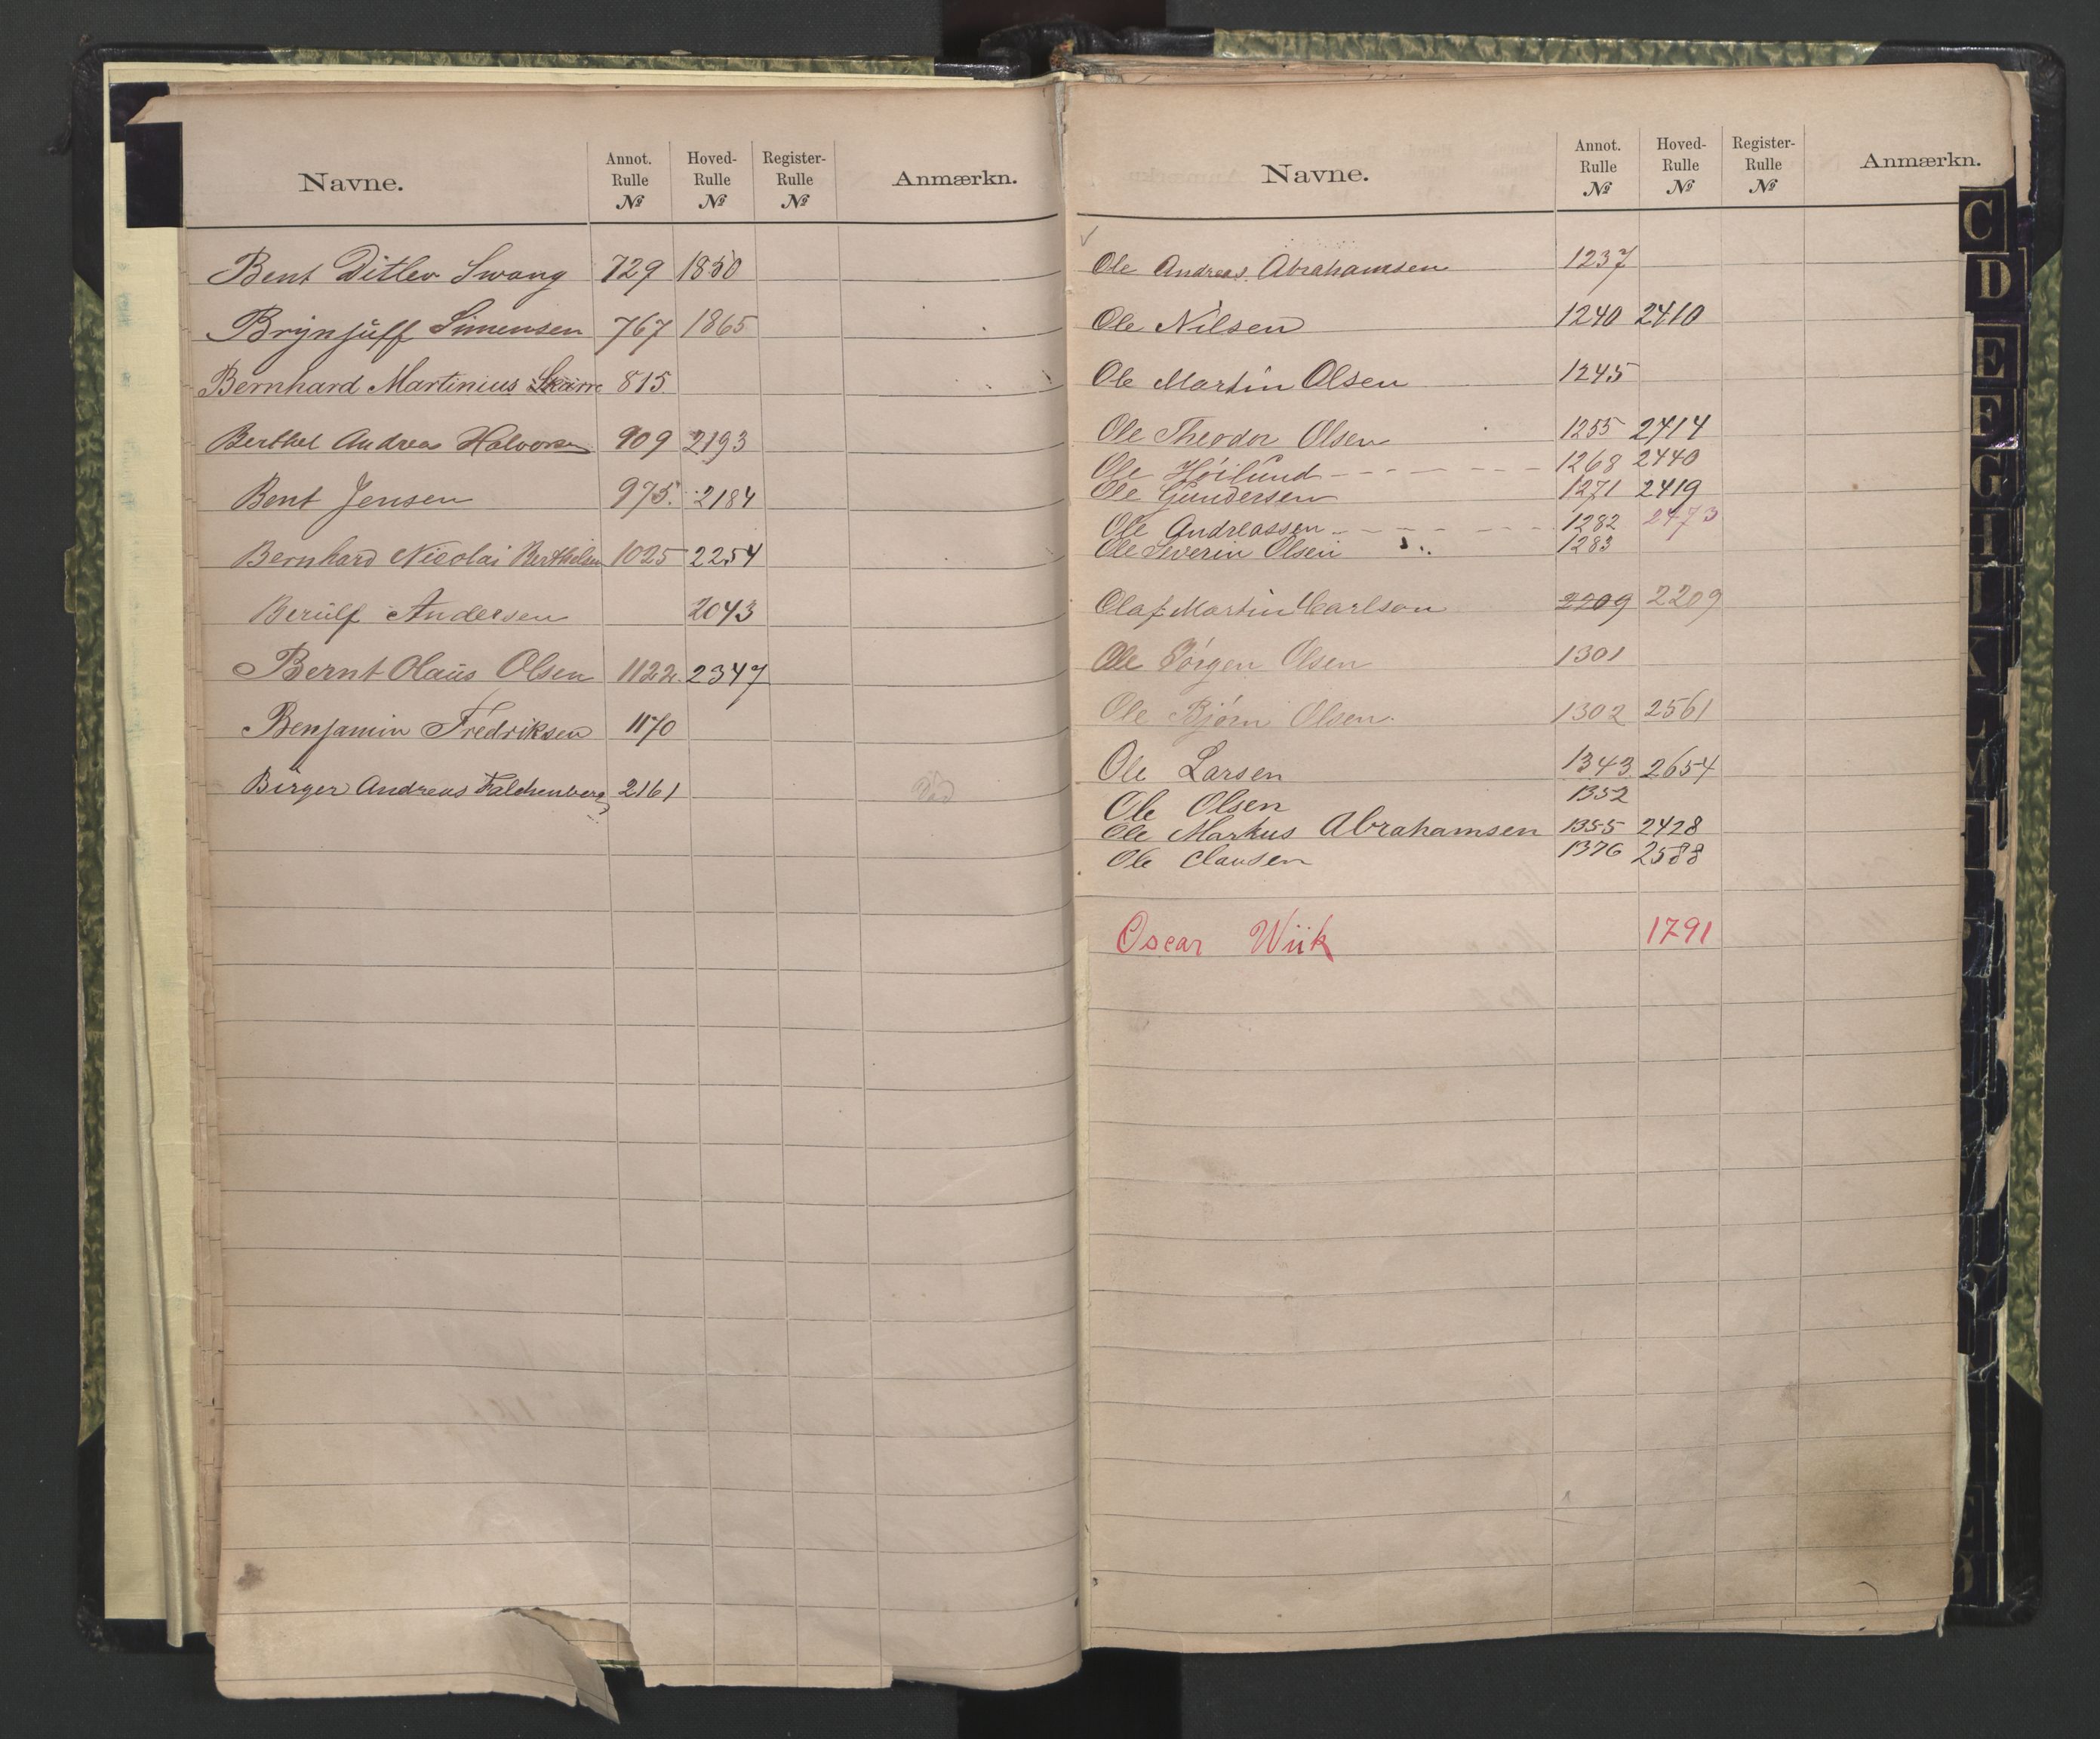 Navne. Annot. Rulle № Hoved-Rulle № Register-Rulle № Anmærkn.
Bent Ditlev Svang 729 1850
Brynjulf Simensen 767 1865
Bernhard Martinius 815.
Berthel Andreas Halvorsen 909 2193
Bent Jensen 975. 2184
Bernhard Nicolai Berthelsen 1025 2254
Berulf Andersen 2043
Bernt Olaüs Olsen 1122. 2347
Benjamin Fredriksen 1170
Birger Andreas Falchenberg 2161
Navne. Annot. Rulle № Hoved-Rulle № Register-Rulle № Anmærkn.
Ole Andreas Abrahamsen 1237
Ole Nilsen 1240 2410
Ole Martin Olsen 1245
Ole Theodor Olsen 1255 2414
Ole Höilund 1268 2440
Ole Gundersen 1271 2419
Ole Andreassen 1282 2473
Ole Severin Olsen 1283
Olaf Martin Carlson 2209 2209
Ole Jörgen Olsen 1301
Ole Bjørn Olsen. 1302 2561
Ole Larsen 1343 2654
Ole Olsen 1352
Ole Markus Abrahamsen 1355 2428
Ole Clausen 1376 2588
Oscar Wiik 1791
C
D
E
F
G
H
I
K
L
M